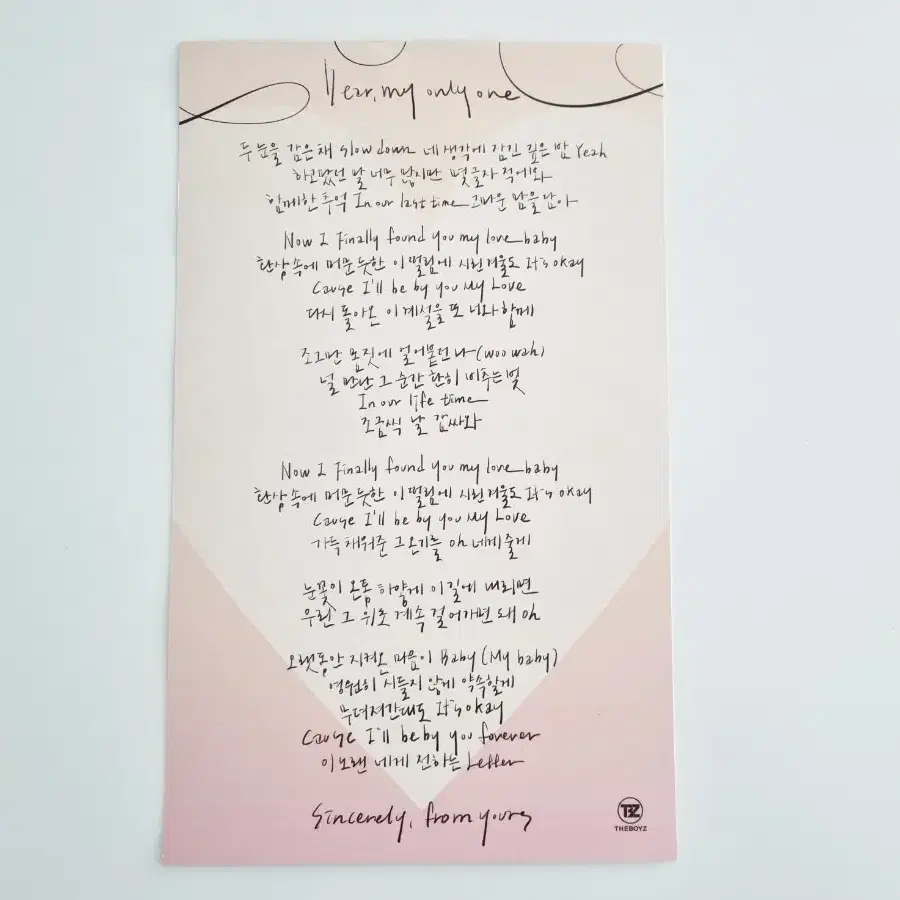 Dear, my only one
두 눈을 감은 채 slow down 네 생각에 잠긴 깊은 밤 Yeah
하고팠던 말 너무 많지만 몇 글자 적에와
함께한 추억 In our last time 고마운 맘을 담아
Now I Finally found you my love baby
환상 속에 머문 듯한 이 떨림에 시린 겨울도 It's okay
Cause I'll be by you My Love
다시 돌아온 이 계절을 또 너와 함께
조그만 몸짓에 얼어붙던 나 (woo wah)
널 만난 그 순간 환히 비추는 빛
In our life time
조금씩 날 감싸와
Now I Finally found you my love baby
환상 속에 머문 듯한 이 떨림에 시린 겨울도 It's okay
Cause I'll be by you My Love
가득 채워준 그 온기를 oh 네게 줄게
눈꽃이 온통 하얗게 이 길에 내리면
우린 그 위로 계속 걸어가면 돼 oh
오랫동안 지켜온 마음이 Baby (My baby)
영원히 시들지 않게 약속할게
무뎌져간대도 It's okay
Cause I'll be by you forever
이 노랜 네게 전하는 Letter
Sincerely, from yours
TBZ
THEBOYZ